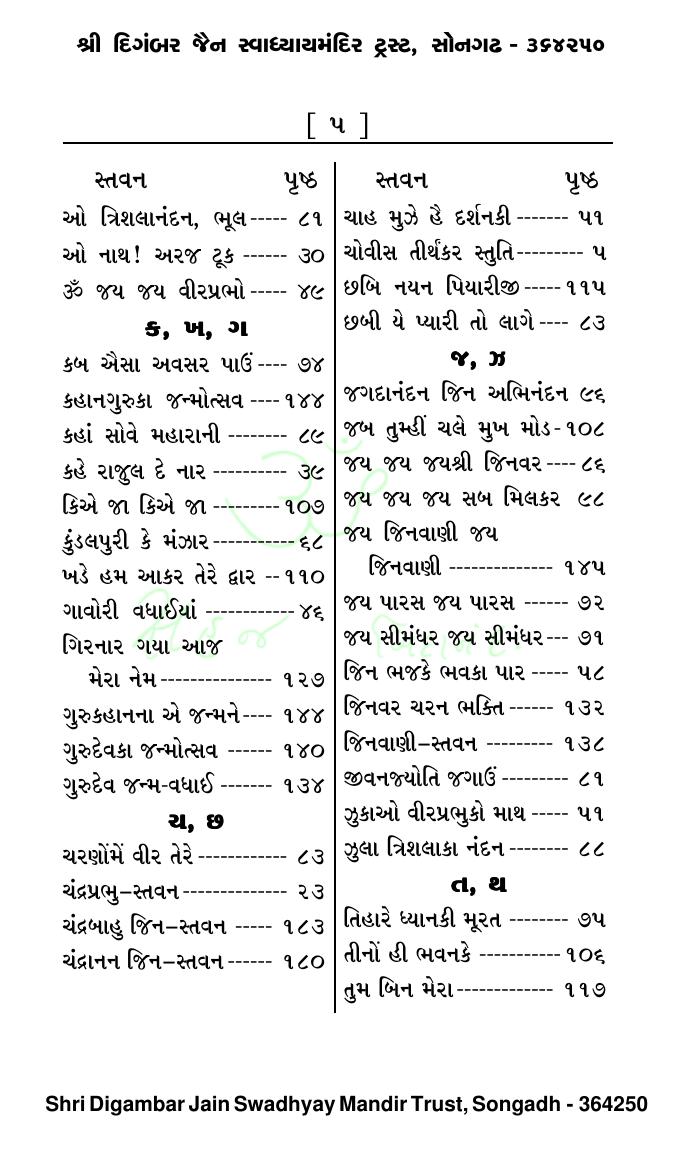 શ્રી દિગંબર જૈન સ્વાધ્યાયમંદિર ટ્રસ્ટ, સોનગઢ - ૩૬૪૨૫૦
[ ૫ ]
સ્તવન પૃષ્ઠ
ઓ ત્રિશલાનંદન, ભૂલ ----- ૮૧
ઓ નાથ! અરજ ટૂક ------ ૩૦
ૐ જય જય વીરપ્રભો ----- ૪૯
ક, ખ, ગ
કબ ઐસા અવસર પાઉં ---- ૭૪
કહાનગુરુકા જન્મોત્સવ ---- ૧૪૪
કહાં સોવે મહારાની -------- ૮૯
કહે રાજુલ દે નાર ---------- ૩૯
કિએ જા કિએ જા --------- ૧૦૭
કુંડલપુરી કે મંઝાર ----------- ૬૮
ખડે હમ આકર તેરે દ્વાર -- ૧૧૦
ગાવોરી વધાઈયાં ------------ ૪૬
ગિરનાર ગયા આજ
મેરા નેમ --------------- ૧૨૭
ગુરુકહાનના એ જન્મને ---- ૧૪૪
ગુરુદેવકા જન્મોત્સવ ------ ૧૪૦
ગુરુદેવ જન્મ-વધાઈ ------- ૧૩૪
ચ, છ
ચરણોંમેં વીર તેરે ------------ ૮૩
ચંદ્રપ્રભુ–સ્તવન -------------- ૨૩
ચંદ્રબાહુ જિન–સ્તવન ----- ૧૮૩
ચંદ્રાનન જિન–સ્તવન ------ ૧૮૦
સ્તવન પૃષ્ઠ
ચાહ મુઝે હૈ દર્શનકી ------- ૫૧
ચોવીસ તીર્થંકર સ્તુતિ --------- ૫
છબિ નયન પિયારીજી ----- ૧૧૫
છબી યે પ્યારી તો લાગે ---- ૮૩
જ, ઝ
જગદાનંદન જિન અભિનંદન ૯૬
જબ તુમ્હીં ચલે મુખ મોડ - ૧૦૮
જય જય જયશ્રી જિનવર ---- ૮૬
જય જય જય સબ મિલકર ૯૮
જય જિનવાણી જય
જિનવાણી -------------- ૧૪૫
જય પારસ જય પારસ ------ ૭૨
જય સીમંધર જય સીમંધર --- ૭૧
જિન ભજકે ભવકા પાર ----- ૫૮
જિનવર ચરન ભક્તિ ------ ૧૩૨
જિનવાણી–સ્તવન --------- ૧૩૮
જીવનજ્યોતિ જગાઉં --------- ૮૧
ઝુકાઓ વીરપ્રભુકો માથ ----- ૫૧
ઝુલા ત્રિશલાકા નંદન -------- ૮૮
ત, થ
તિહારે ધ્યાનકી મૂરત -------- ૭૫
તીનોં હી ભવનકે ----------- ૧૦૬
તુમ બિન મેરા ------------- ૧૧૭
Shri Digambar Jain Swadhyay Mandir Trust, Songadh - 364250